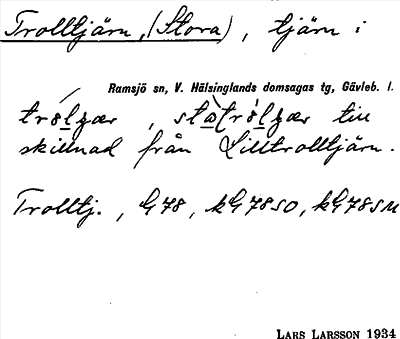 Trolltjärn, (Stora), tjärn i
Ramsjö sn, V. Hälsinglands domsagas tg, Gävleb. l.
till
skillnad från Lilltrolltjärn.
Trolltj., G78, kG78SO, kG78SM
LARS LARSSON 1934